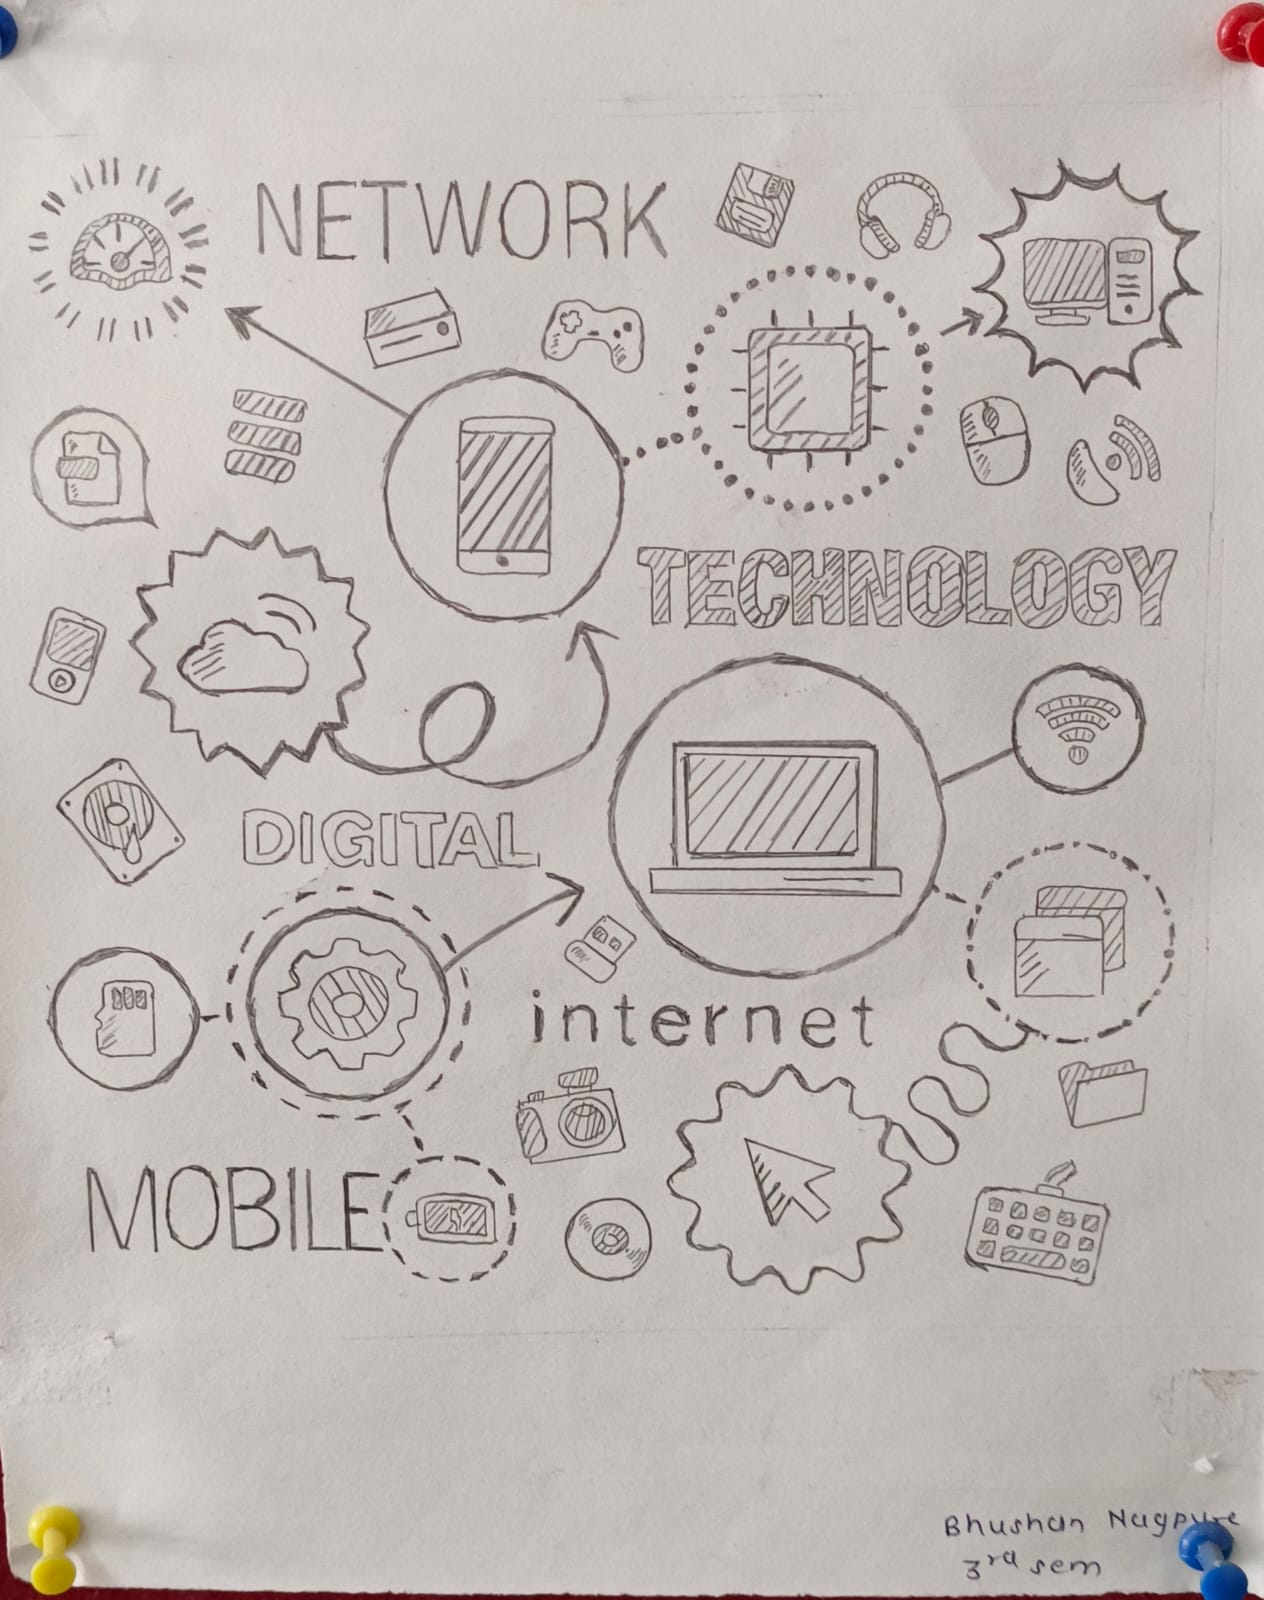 NETWORK
TECHNOLOGY
DIGITAL
internet
MOBILE
Bhushan Nagpure
3rd sem